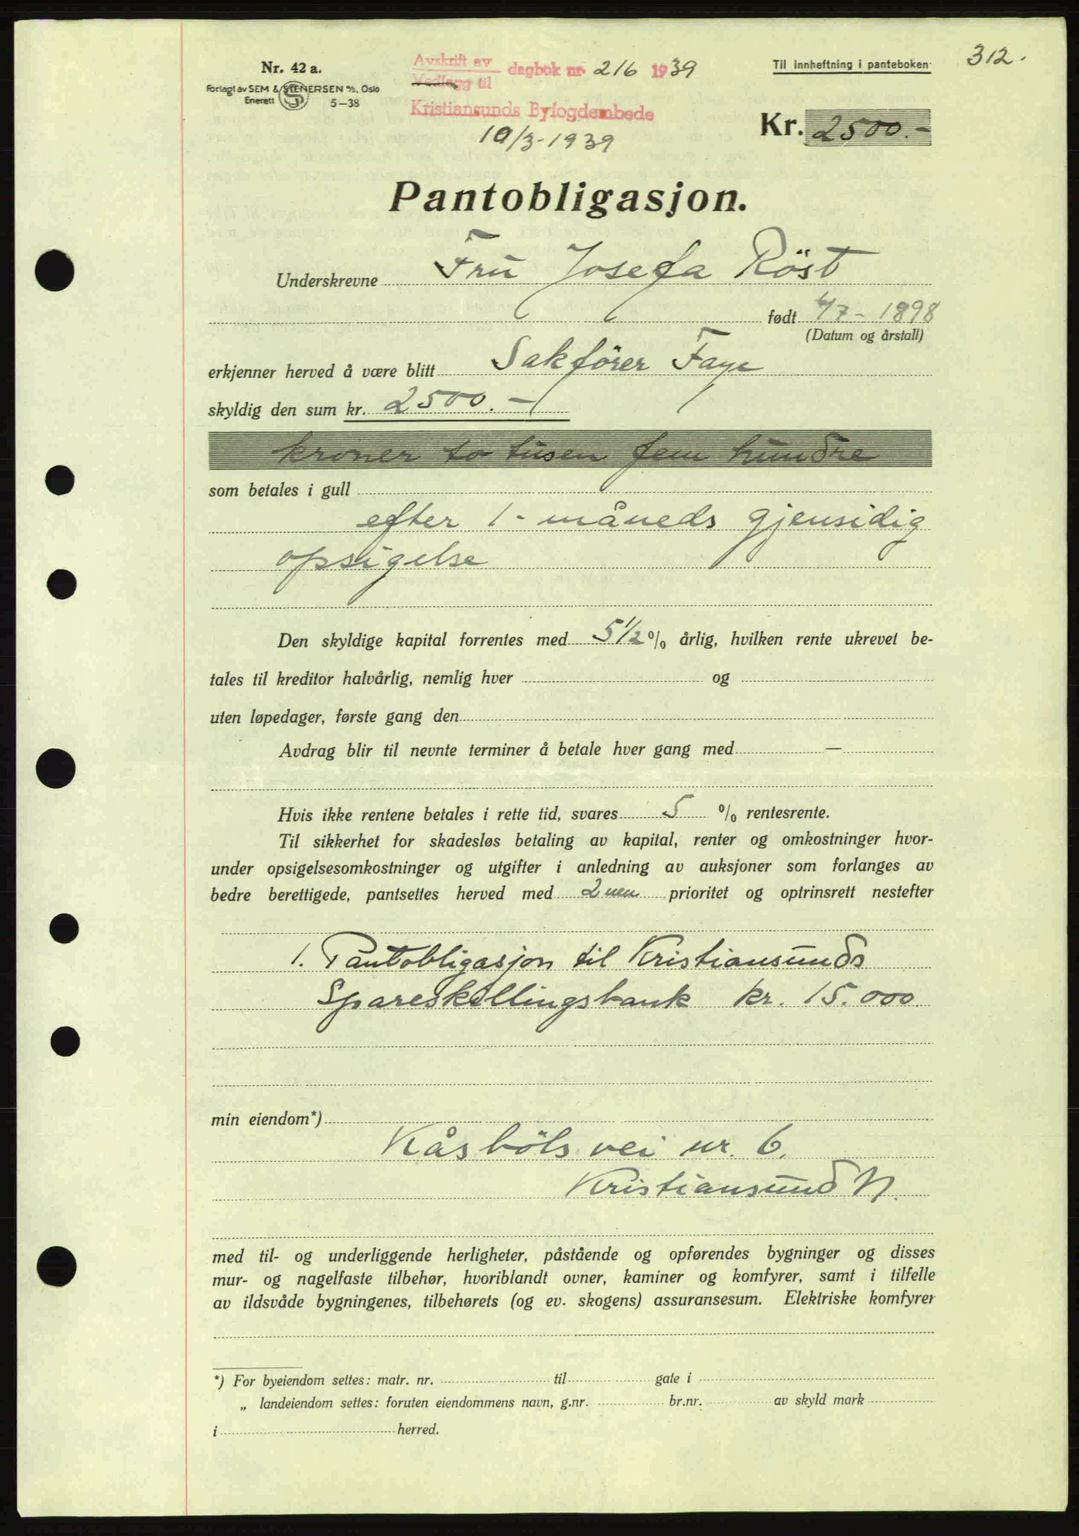 312.
Nr. 42 a.
Forlagt av SEM & STENERSEN A/S, Oslo
Enerett 5-38
Avskrift av
Vedlegg til
dagbok nr. 216 1939
Kristiansunds Byfogdembede
10/3-1939
Til innheftning i panteboken
Kr. 2500.-
Pantobligasjon.
Underskrevne Fru Josefa Röst
født 4/7- 1898
(Datum og årstall)
erkjenner herved å være blitt Sakfører Faye
skyldig den sum kr. 2500.-
kroner to tusen fem hundre
som betales i gull
efter 1- måneds gjensidig
opsigelse
Den skyldige kapital forrentes med 5 1/2 % årlig, hvilken rente ukrevet be-
tales til kreditor halvårlig, nemlig hver og
uten løpedager, første gang den
Avdrag blir til nevnte terminer å betale hver gang med —
Hvis ikke rentene betales i rette tid, svares 5 % rentesrente.
Til sikkerhet for skadesløs betaling av kapital, renter og omkostninger hvor-
under opsigelsesomkostninger og utgifter i anledning av auksjoner som forlanges av
bedre berettigede, pantsettes herved med 2nen prioritet og optrinsrett nestefter
1. Pantobligasjon til Kristiansunds
Spareskillingsbank kr. 15.000
min eiendom*)
Kåsböls vei nr. 6.
Kristiansund N.
med til- og underliggende herligheter, påstående og opførendes bygninger og disses
mur- og nagelfaste tilbehør, hvoriblandt ovner, kaminer og komfyrer, samt i tilfelle
av ildsvåde bygningenes, tilbehørets (og ev. skogens) assuransesum. Elektriske komfyrer
*) For byeiendom settes: matr. nr. til gate i
„ landeiendom settes: foruten eiendommens navn, g.nr. br.nr. av skyld mark
i herred.